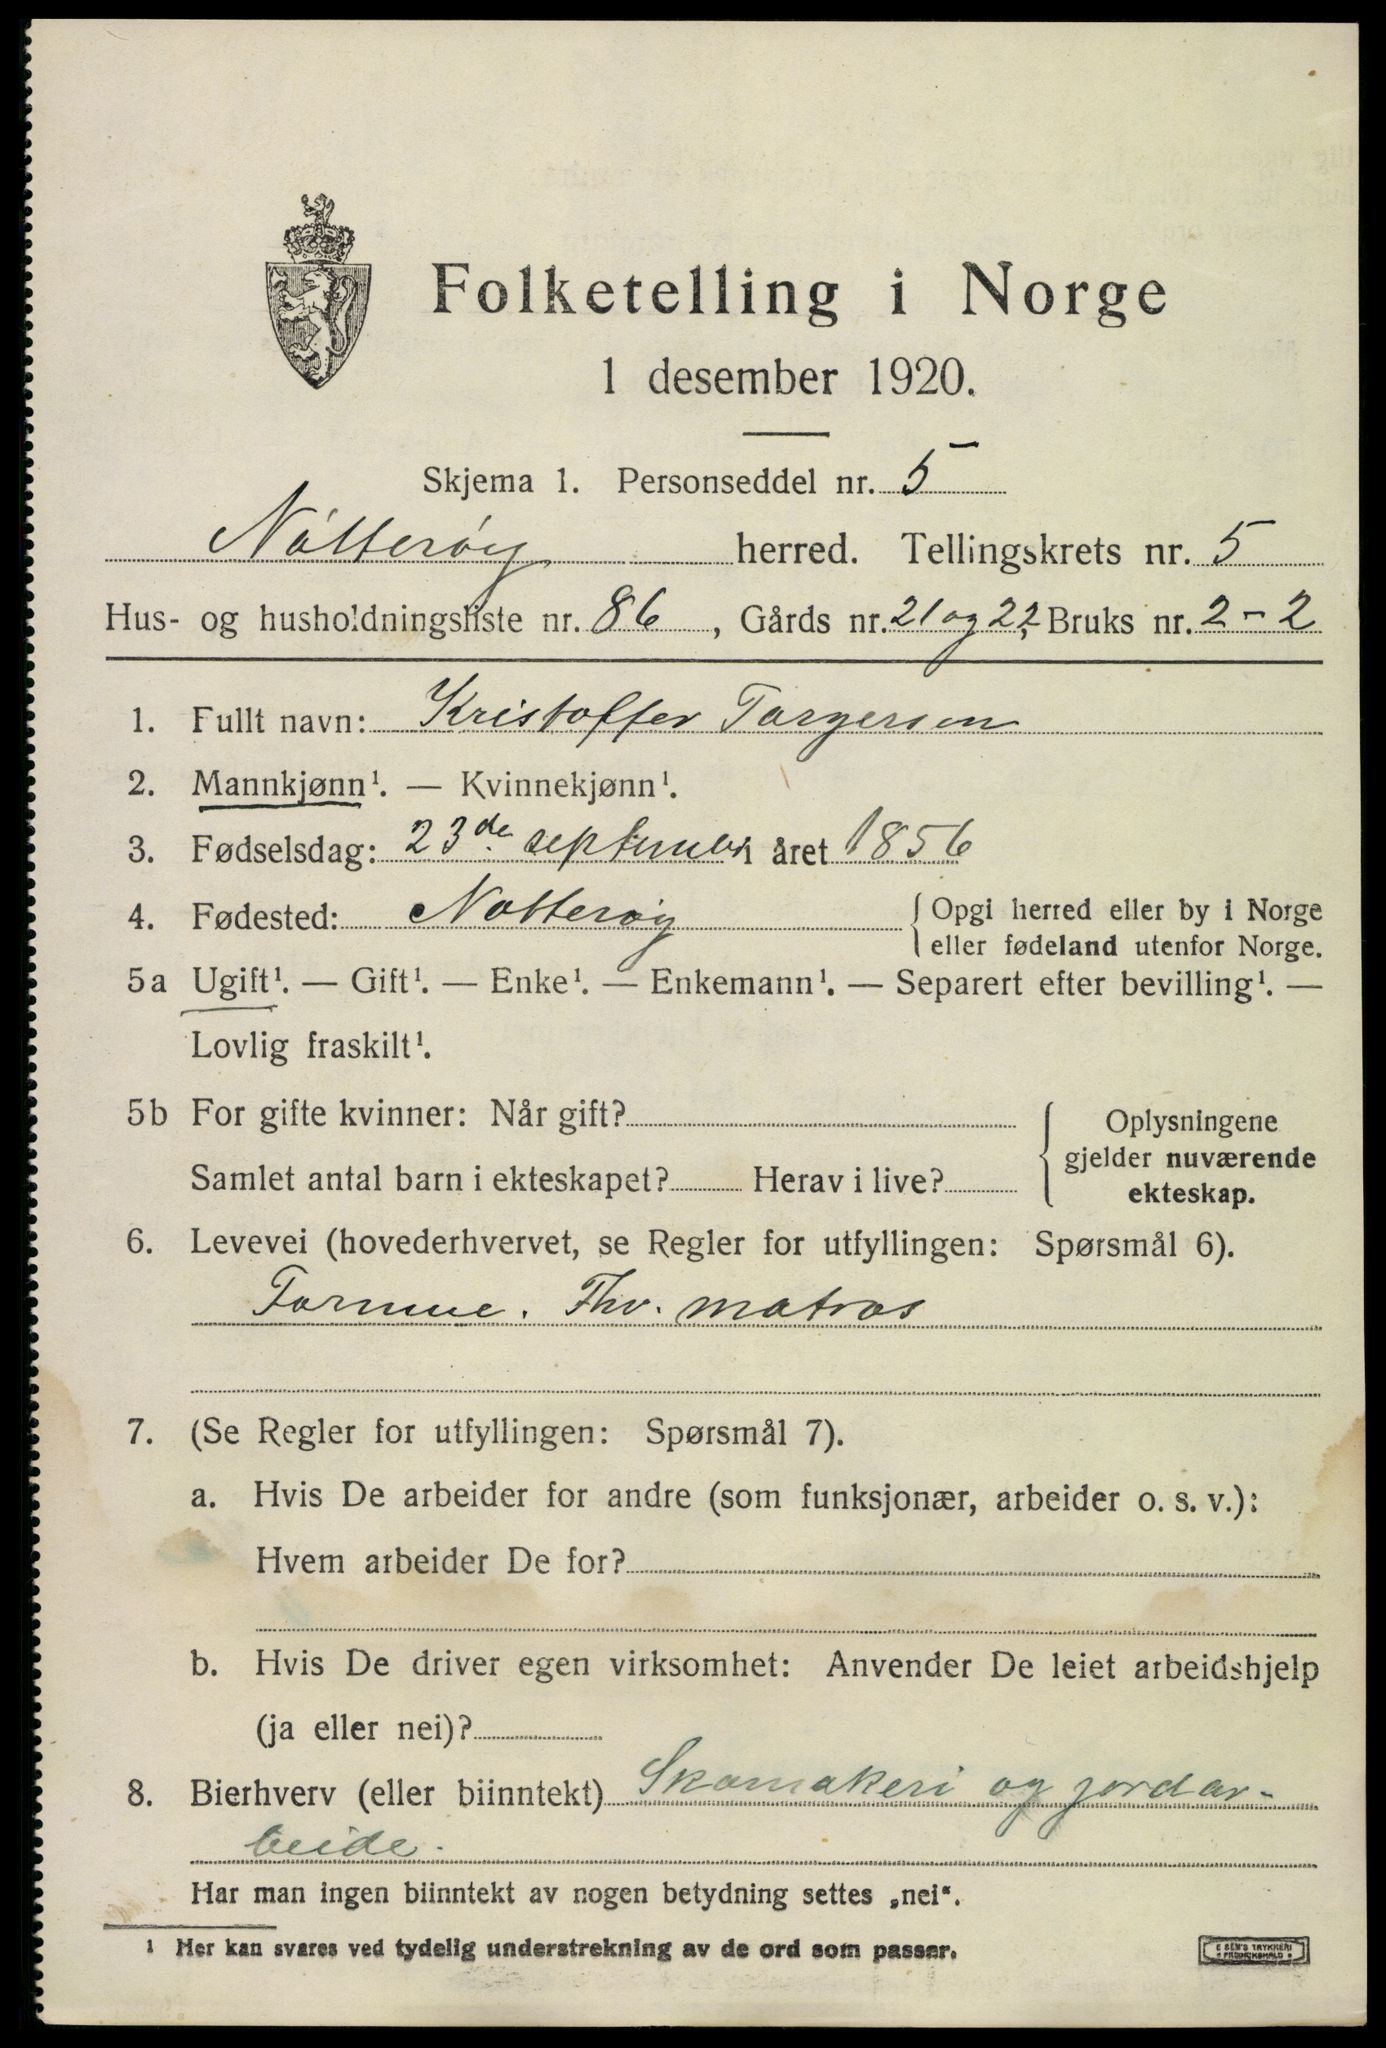 Folketelling i Norge
1 desember 1920.
Skjema 1. Personseddel nr. 5
Nötterøy herred. Tellingskrets nr. 5
Hus- og husholdningsliste nr. 86, Gårds nr. 21 og 22, Bruks nr. 2-2
1. Fullt navn: Kristoffer Torgersen
2. Mannkjønn¹. — Kvinnekjønn¹.
3. Fødselsdag: 23de september i året 1856
4. Fødested: Notterøy {Opgi herred eller by i Norge
eller fødeland utenfor Norge.
5a Ugift¹. — Gift¹. — Enke¹. — Enkemann¹. — Separert efter bevilling¹. —
Lovlig fraskilt¹.
5b For gifte kvinner: Når gift? {Oplysningene
gjelder nuværende
Samlet antal barn i ekteskapet? Herav i live?
ekteskap.
6. Levevei (hovederhvervet, se Regler for utfyllingen: Spørsmål 6).
Formue. Fhv. matros
7. (Se Regler for utfyllingen: Spørsmål 7).
a. Hvis De arbeider for andre (som funksjonær, arbeider o. s. v.):
Hvem arbeider De for?
b. Hvis De driver egen virksomhet: Anvender De leiet arbeidshjelp
(ja eller nei)?
8. Bierhverv (eller biinntekt) Skomakeri og jordar-
beide.
Har man ingen biinntekt av nogen betydning settes „nei“.
¹ Her kan svares ved tydelig understrekning av de ord som passer.